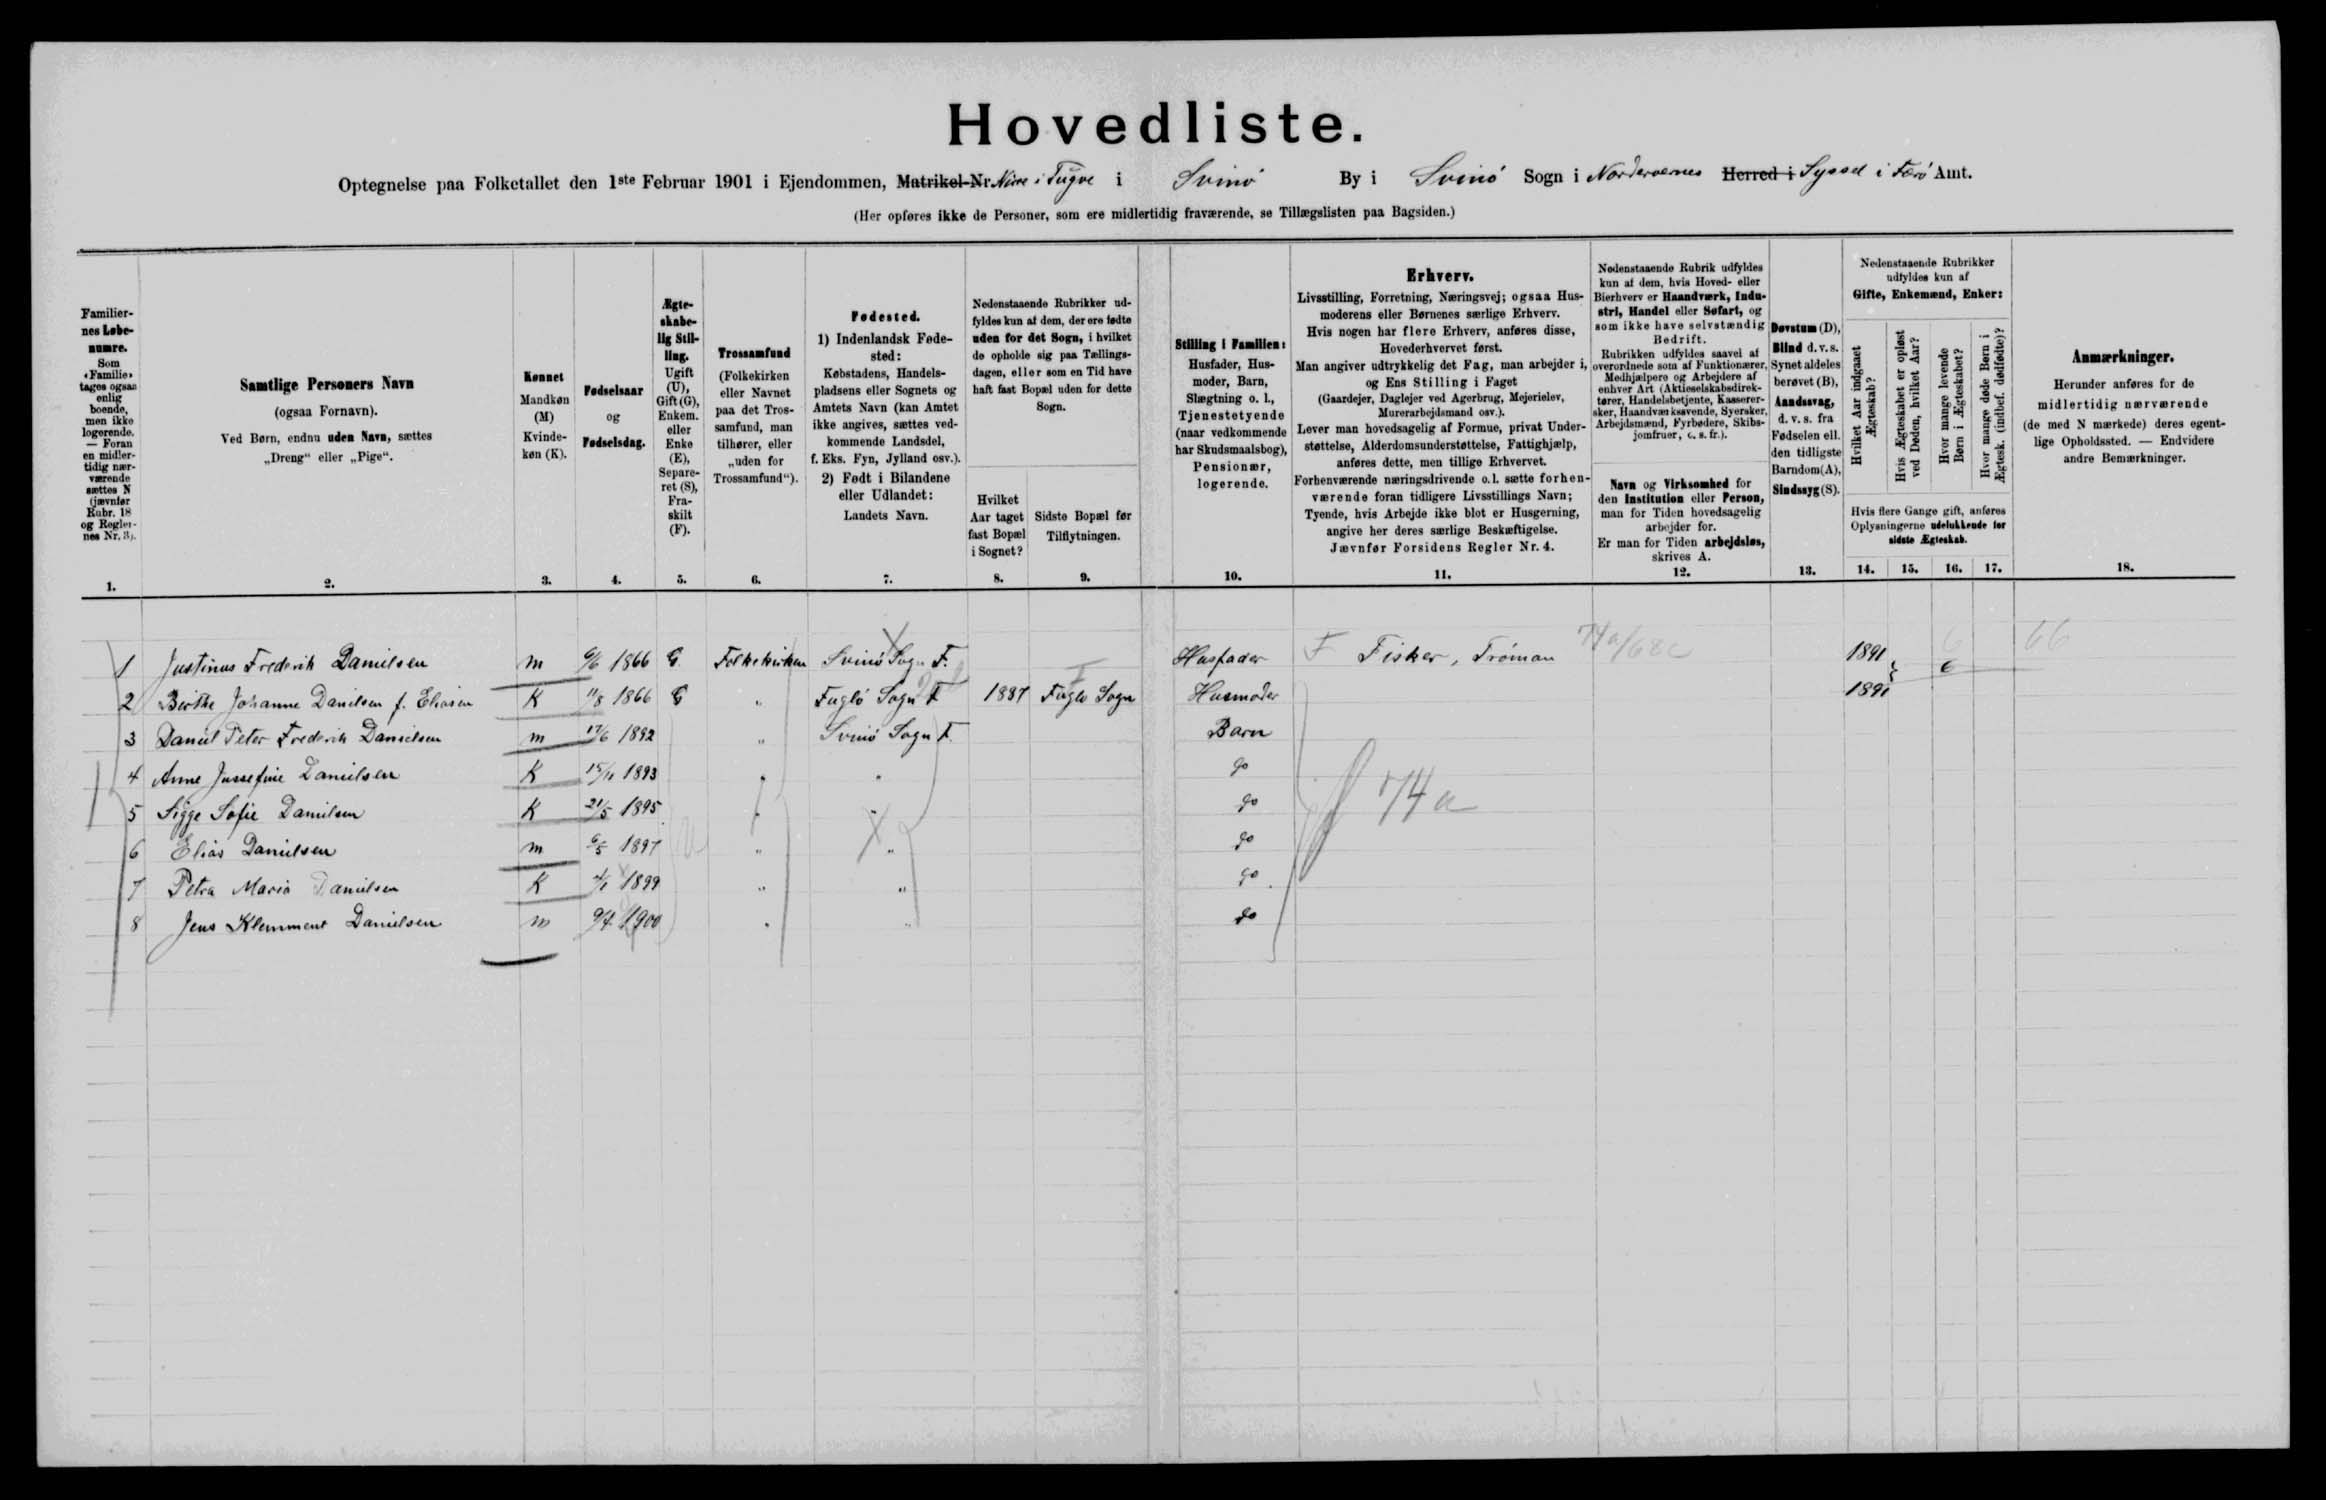 Hovedliste.
Optegnelse paa Folketallet den 1ste Februar 1901 i Ejendommen, Matrikel-Nr. i Svinó By i Svinó Sogn i Norderoernes Herred i Syssel i Færó Amt.
(Her opføres ikke de Personer, som ere midlertidig fraværende, se Tillægslisten paa Bagsiden.)
Familier-
nes Løbe-
numre.
Som
«Familie»
tages ogsaa
enlig
boende,
men ikke
logerende.
— Foran
en midler-
tidig nær-
værende
sættes N
(jævnfør
Rubr. 18
og Regler-
nes Nr. 3).
1.
Samtlige Personers Navn
(ogsaa Fornavn).
Ved Børn, endnu uden Navn, sættes
„Dreng“ eller „Pige“.
2.
Kønnet
Mandkøn
(M)
Kvinde-
køn (K).
3.
Fødselsaar
og
Fødselsdag.
4.
Ægte-
skabe-
lig Stil-
ling.
Ugift
(U),
Gift (G),
Enkem.
eller
Enke
(E),
Separe-
ret (S),
Fra-
skilt
(F).
5.
Trossamfund
(Folkekirken
eller Navnet
paa det Tros-
samfund, man
tilhører, eller
„uden for
Trossamfund“).
6.
Fødested.
1) Indenlandsk Føde-
sted:
Købstadens, Handels-
pladsens eller Sognets og
Amtets Navn (kan Amtet
ikke angives, sættes ved-
kommende Landsdel,
f. Eks. Fyn, Jylland osv.).
2) Født i Bilandene
eller Udlandet:
Landets Navn.
7.
Nedenstaaende Rubrikker ud-
fyldes kun af dem, der ere fødte
uden for det Sogn, i hvilket
de opholde sig paa Tællings-
dagen, eller som en Tid have
haft fast Bopæl uden for dette
Sogn.
Hvilket
Aar taget
fast Bopæl
i Sognet?
8.
Sidste Bopæl før
Tilflytningen.
9.
Stilling i Familien:
Husfader, Hus-
moder, Barn,
Slægtning o. l.,
Tjenestetyende
(naar vedkommende
har Skudsmaalsbog),
Pensionær,
logerende.
10.
Erhverv.
Livsstilling, Forretning, Næringsvej; ogsaa Hus-
moderens eller Børnenes særlige Erhverv.
Hvis nogen har flere Erhverv, anføres disse,
Hovederhvervet først.
Man angiver udtrykkelig det Fag, man arbejder i,
og Ens Stilling i Faget
(Gaardejer, Daglejer ved Agerbrug, Mejerielev,
Murerarbejdsmand osv.).
Lever man hovedsagelig af Formue, privat Under-
støttelse, Alderdomsunderstøttelse, Fattighjælp,
anføres dette, men tillige Erhvervet.
Forhenværende næringsdrivende o.l. sætte forhen-
værende foran tidligere Livsstillings Navn;
Tyende, hvis Arbejde ikke blot er Husgerning,
angive her deres særlige Beskæftigelse.
Jævnfør Forsidens Regler Nr. 4.
11.
Nedenstaaende Rubrik udfyldes
kun af dem, hvis Hoved- eller
Bierhverv er Haandværk, Indu-
stri, Handel eller Søfart, og
som ikke have selvstændig
Bedrift.
Rubrikken udfyldes saavel af
overordnede som af Funktionærer,
Medhjælpere og Arbejdere af
enhver Art (Aktieselskabsdirek-
tører, Handelsbetjente, Kasserer-
sker, Haandværkssvende, Syersker,
Arbejdsmænd, Fyrbødere, Skibs-
jomfruer, o. s. fr.).
Navn og Virksomhed for
den Institution eller Person,
man for Tiden hovedsagelig
arbejder for.
Er man for Tiden arbejdsløs,
skrives A.
12.
Døvstum (D),
Blind d. v. s.
Synet aldeles
berøvet (B),
Aandssvag,
d. v. s. fra
Fødselen ell.
den tidligste
Barndom (A),
Sindssyg (S).
13.
Nedenstaaende Rubrikker
udfyldes kun af
Gifte, Enkemænd, Enker:
Hvilket Aar indgaaet
Ægteskab?
Hvis Ægteskabet er opløst
ved Døden, hvilket Aar?
Hvor mange levende
Børn i Ægteskabet?
Hvor mange døde Børn i
Ægtesk. (indbef. dødfødte)?
Hvis flere Gange gift, anføres
Oplysningerne udelukkende for
sidste Ægteskab.
14. 15. 16. 17.
Anmærkninger.
Herunder anføres for de
midlertidig nærværende
(de med N mærkede) deres egent-
lige Opholdssted. — Endvidere
andre Bemærkninger.
18.
1 Justinus Frederik Danielsen m 6/6 1866 G. Folkekirken Svinó Sogn F. Husfader F Fisker, Tróman 74a/68c 1891 6 6 66
2 Birthe Johanne Danielsen f. Eliasen K 11/8 1866 G " Fugló Sogn F 1887 Fugló Sogn Husmoder 1891
3 Daniel Peter Frederik Danielsen m 17/6 1892 " Svinó Sogn F. Barn
4 Anne Jussefine Danielsen K 15/11 1893 " " do
5 Sigge Sofie Danielsen K 21/5 1895 " " do 74a
6 Elias Danielsen m 6/5 1897 " " do
7 Petra Maria Danielsen K 1899 " " do
8 Jens Klemment Danielsen m 9/4 1900 " " do